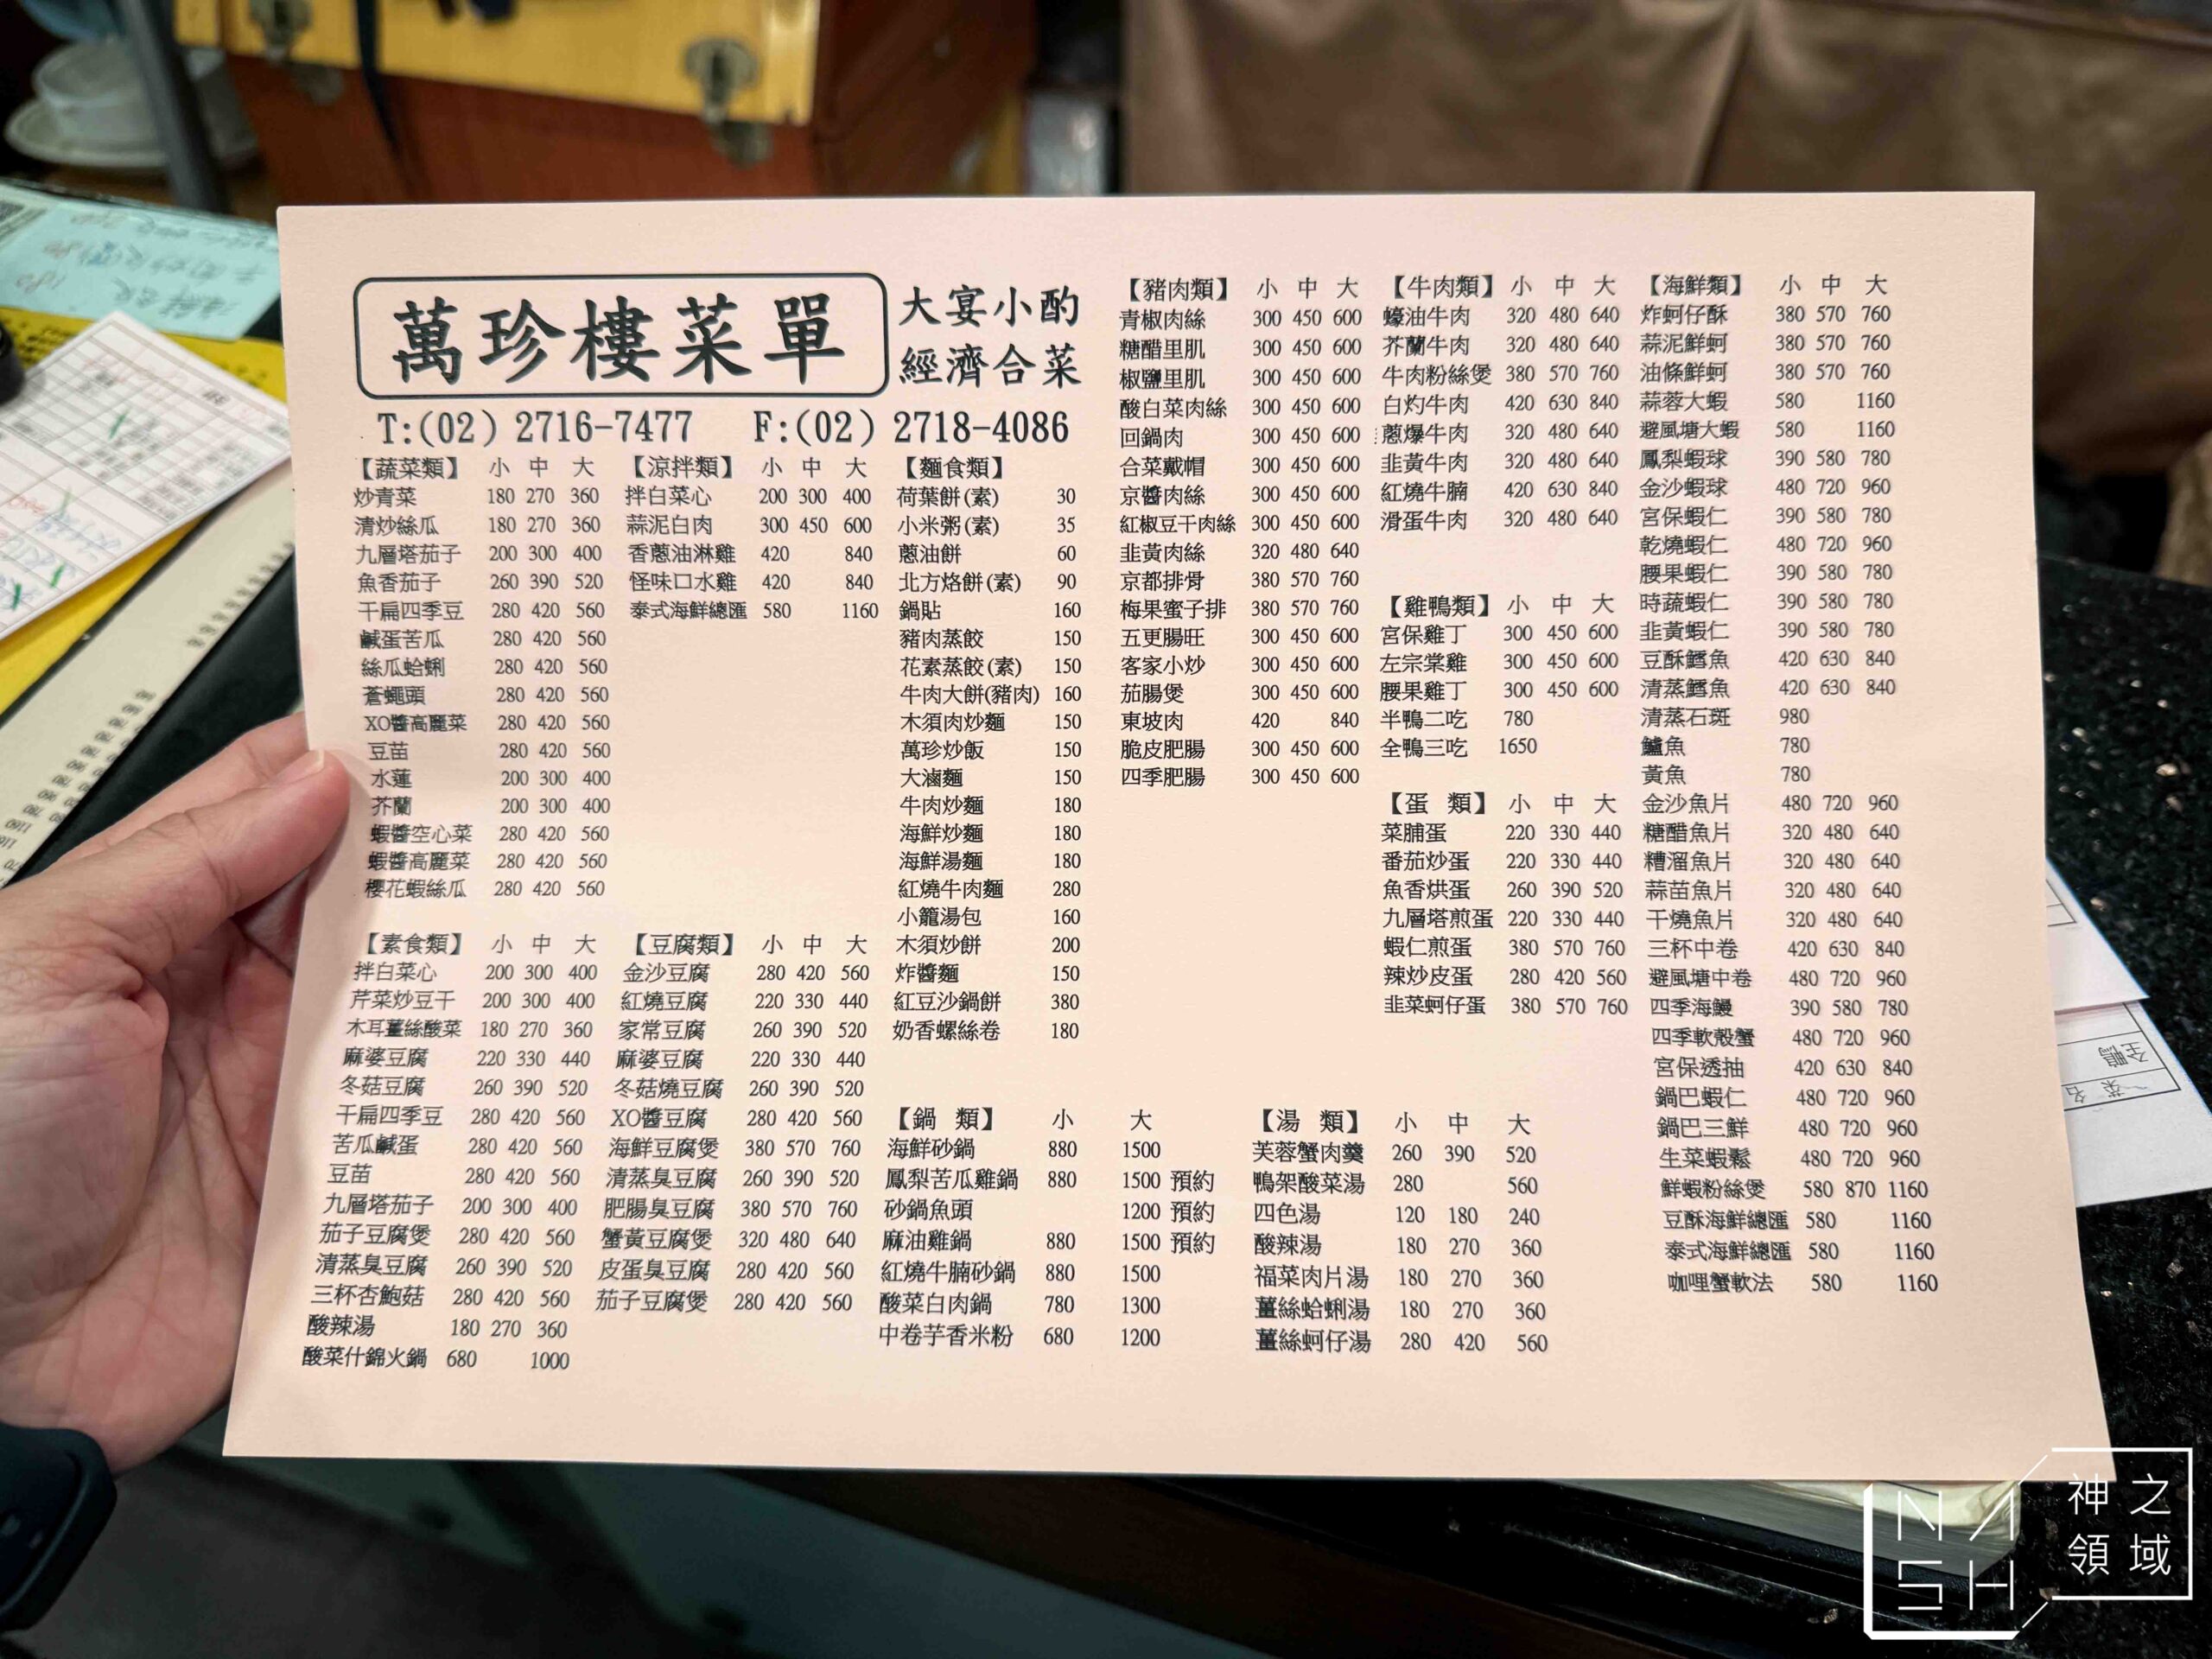 萬珍樓菜單
大宴小酌
經濟合菜
T:(02) 2716-7477 F:(02) 2718-4086
【蔬菜類】 小 中 大
炒青菜 180 270 360
清炒絲瓜 180 270 360
九層塔茄子 200 300 400
魚香茄子 260 390 520
干扁四季豆 280 420 560
鹹蛋苦瓜 280 420 560
絲瓜蛤蜊 280 420 560
蒼蠅頭 280 420 560
XO醬高麗菜 280 420 560
豆苗 280 420 560
水蓮 200 300 400
芥蘭 200 300 400
蝦醬空心菜 280 420 560
蝦醬高麗菜 280 420 560
櫻花蝦絲瓜 280 420 560
【素食類】 小 中 大
拌白菜心 200 300 400
芹菜炒豆干 200 300 400
木耳薑絲酸菜 180 270 360
麻婆豆腐 220 330 440
冬菇豆腐 260 390 520
干扁四季豆 280 420 560
苦瓜鹹蛋 280 420 560
豆苗 280 420 560
九層塔茄子 200 300 400
茄子豆腐煲 280 420 560
清蒸臭豆腐 260 390 520
三杯杏鮑菇 280 420 560
酸辣湯 180 270 360
酸菜什錦火鍋 680 1000
【涼拌類】 小 中 大
拌白菜心 200 300 400
蒜泥白肉 300 450 600
香蔥油淋雞 420 840
怪味口水雞 420 840
泰式海鮮總匯 580 1160
【豆腐類】 小 中 大
金沙豆腐 280 420 560
紅燒豆腐 220 330 440
家常豆腐 260 390 520
麻婆豆腐 220 330 440
冬菇燒豆腐 260 390 520
XO醬豆腐 280 420 560
海鮮豆腐煲 380 570 760
清蒸臭豆腐 260 390 520
肥腸臭豆腐 380 570 760
蟹黃豆腐煲 320 480 640
皮蛋臭豆腐 280 420 560
茄子豆腐煲 280 420 560
【麵食類】
荷葉餅(素) 30
小米粥(素) 35
蔥油餅 60
北方烙餅(素) 90
鍋貼 160
豬肉蒸餃 150
花素蒸餃(素) 150
牛肉大餅(豬肉) 160
木須肉炒麵 150
萬珍炒飯 150
大滷麵 150
牛肉炒麵 180
海鮮炒麵 180
海鮮湯麵 180
紅燒牛肉麵 280
小籠湯包 160
木須炒餅 200
炸醬麵 150
紅豆沙鍋餅 380
奶香螺絲卷 180
【鍋 類】 小 大
海鮮砂鍋 880 1500
鳳梨苦瓜雞鍋 880 1500 預約
砂鍋魚頭 1200 預約
麻油雞鍋 880 1500 預約
紅燒牛腩砂鍋 880 1500
酸菜白肉鍋 780 1300
中卷芋香米粉 680 1200
【豬肉類】 小 中 大
青椒肉絲 300 450 600
糖醋里肌 300 450 600
椒鹽里肌 300 450 600
酸白菜肉絲 300 450 600
回鍋肉 300 450 600
合菜戴帽 300 450 600
京醬肉絲 300 450 600
紅椒豆干肉絲 300 450 600
韭黃肉絲 320 480 640
京都排骨 380 570 760
梅果蜜子排 380 570 760
五更腸旺 300 450 600
客家小炒 300 450 600
茄腸煲 300 450 600
東坡肉 420 840
脆皮肥腸 300 450 600
四季肥腸 300 450 600
【湯 類】 小 中 大
芙蓉蟹肉羹 260 390 520
鴨架酸菜湯 280 560
四色湯 120 180 240
酸辣湯 180 270 360
福菜肉片湯 180 270 360
薑絲蛤蜊湯 180 270 360
薑絲蚵仔湯 280 420 560
【牛肉類】 小 中 大
蠔油牛肉 320 480 640
芥蘭牛肉 320 480 640
牛肉粉絲煲 380 570 760
白灼牛肉 420 630 840
蔥爆牛肉 320 480 640
韭黃牛肉 320 480 640
紅燒牛腩 420 630 840
滑蛋牛肉 320 480 640
【雞鴨類】 小 中 大
宮保雞丁 300 450 600
左宗棠雞 300 450 600
腰果雞丁 300 450 600
半鴨二吃 780
全鴨三吃 1650
【蛋 類】 小 中 大
菜脯蛋 220 330 440
番茄炒蛋 220 330 440
魚香烘蛋 260 390 520
九層塔煎蛋 220 330 440
蝦仁煎蛋 380 570 760
辣炒皮蛋 280 420 560
韭菜蚵仔蛋 380 570 760
【海鮮類】 小 中 大
炸蚵仔酥 380 570 760
蒜泥鮮蚵 380 570 760
油條鮮蚵 380 570 760
蒜蓉大蝦 580 1160
避風塘大蝦 580 1160
鳳梨蝦球 390 580 780
金沙蝦球 480 720 960
宮保蝦仁 390 580 780
乾燒蝦仁 480 720 960
腰果蝦仁 390 580 780
時蔬蝦仁 390 580 780
韭黃蝦仁 390 580 780
豆酥鱈魚 420 630 840
清蒸鱈魚 420 630 840
清蒸石斑 980
鱸魚 780
黃魚 780
金沙魚片 480 720 960
糖醋魚片 320 480 640
糟溜魚片 320 480 640
蒜苗魚片 320 480 640
干燒魚片 320 480 640
三杯中卷 420 630 840
避風塘中卷 480 720 960
四季海鰻 390 580 780
四季軟殼蟹 480 720 960
宮保透抽 420 630 840
鍋巴蝦仁 480 720 960
鍋巴三鮮 480 720 960
生菜蝦鬆 480 720 960
鮮蝦粉絲煲 580 870 1160
豆酥海鮮總匯 580 1160
泰式海鮮總匯 580 1160
咖哩蟹軟法 580 1160
全鴨
菜名
NASH
神之
領域